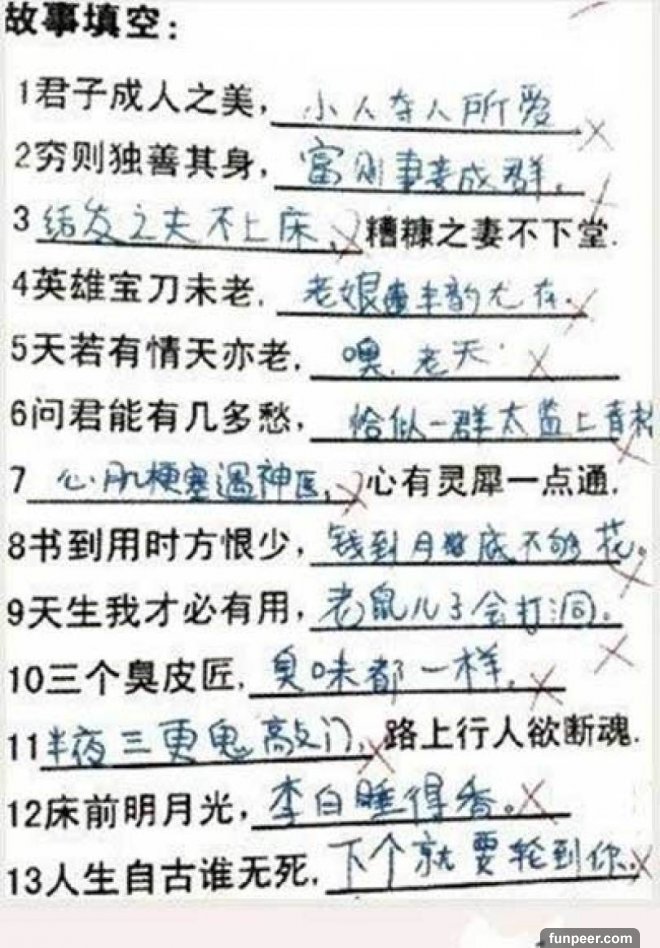 故事填空:
1君子成人之美,小人夺人所爱
2穷则独善其身,富则妻妾成群.
3结发之夫不上床,糟糠之妻不下堂.
4英雄宝刀未老,老娘丰韵尤存.
5天若有情天亦老,噢,老天
6问君能有几多愁,恰似一群太监上青楼
7心肌梗塞遇神医,心有灵犀一点通.
8书到用时方恨少,钱到月底不够花。
9天生我才必有用,老鼠儿子会打洞。
10三个臭皮匠,臭味都一样,
11半夜三更鬼敲门,路上行人欲断魂.
12床前明月光,李白睡得香。
13人生自古谁无死,下个就要轮到你.
funpeer.com